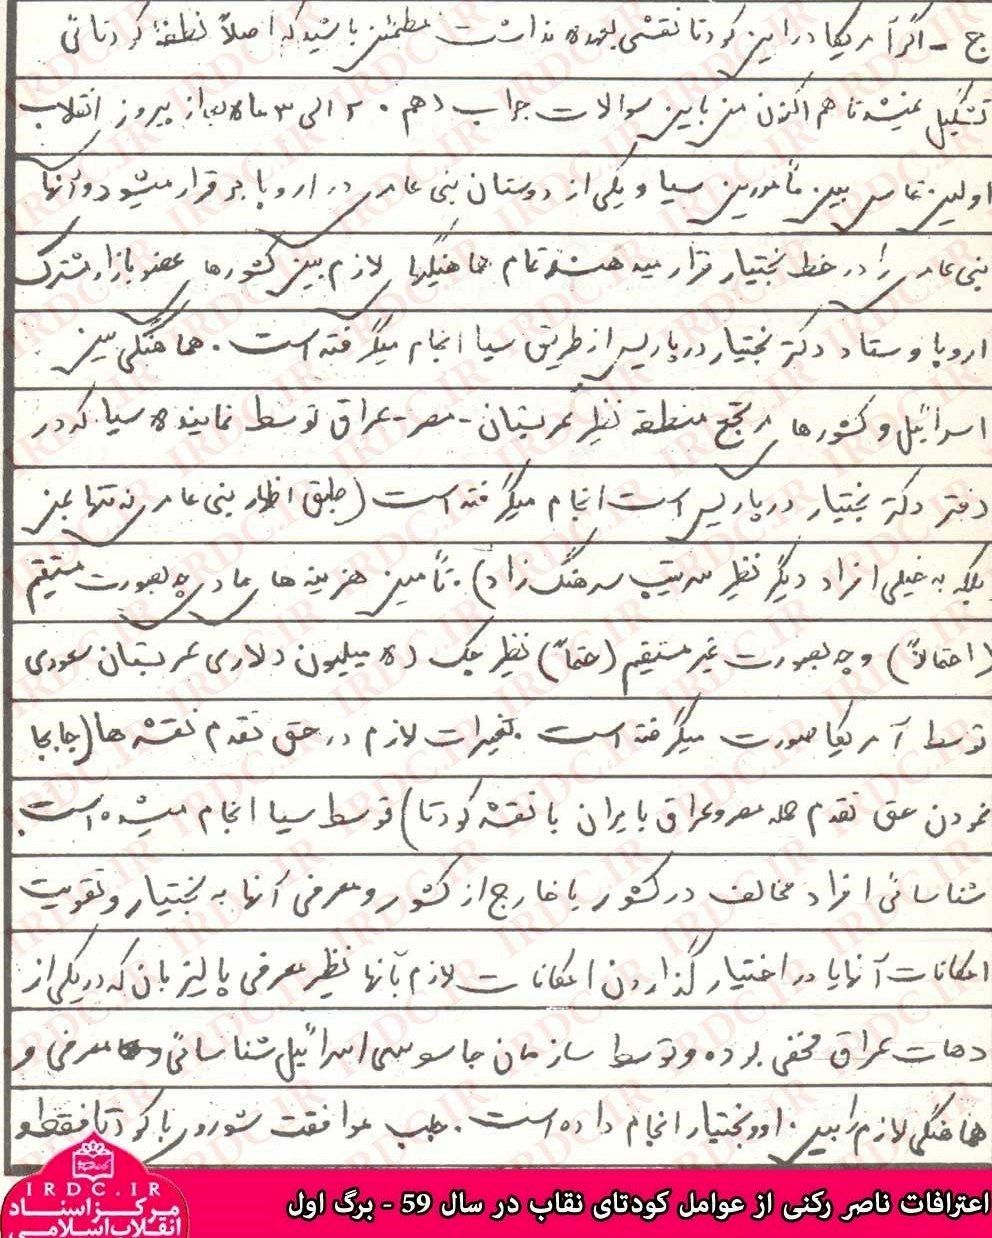 ج - اگر آمریکا در این کودتا نقشی بعهده نداشت مطمئن باشید که اصلاً نطفهٔ کودتائی
تشکیل نمیشد تا هم اکنون من باین سوالات جواب دهم . ۲ الی ۳ ماه بعد از پیروز انقلاب
اولین تماس بین مأمورین سیا و یکی از دوستان بنی عامری در اروپا برقرار میشود و آنها
بنی عامری را در خط بختیار قرار میدهند تمام هماهنگیها لازم بین کشورها عضو بازار مشترک
اروپا و ستاد دکتر بختیار در پاریس از طریق سیا انجام میگرفته است . هماهنگی بین
اسرائیل و کشورها مرتجع منطقه نظیر عربستان - مصر - عراق توسط نماینده سیا که در
دفتر دکتر بختیار در پاریس است انجام میگرفته است (طبق اظهار بنی عامری نه تنها بمن
بلکه به خیلی افراد دیگر نظیر سرتیپ سرهنگ زاد) . تأمین هزینه ها مادی چه بصورت مستقیم
(احتمالاً) و چه بصورت غیر مستقیم (حتماً) نظیر چک ۵ میلیون دلاری عربستان سعودی
توسط آمریکا صورت میگرفته است . تغییرات لازم در حق تقدم نقشه ها (جابجا
نمودن حق تقدم حمله مصر و عراق بایران با نقشه کودتا) توسط سیا انجام میشده است
شناسائی افراد مخالف در کشور یا خارج از کشور و معرفی آنها به بختیار و تقویت
امکانات آنها یا در اختیار گذاردن امکانات لازم بآنها نظیر معرفی پالیزبان که در یکی از
دهات عراق مخفی بوده و توسط سازمان جاسوسی اسرائیل شناسائی و معرفی و
هماهنگی لازم را بین او و بختیار انجام داده است . جلب موافقت شوروی با کودتا فقط و
اعترافات ناصر رکنی از عوامل کودتای نقاب در سال 59 - برگ اول
IRDC.IR
مرکز اسناد
انقلاب اسلامی